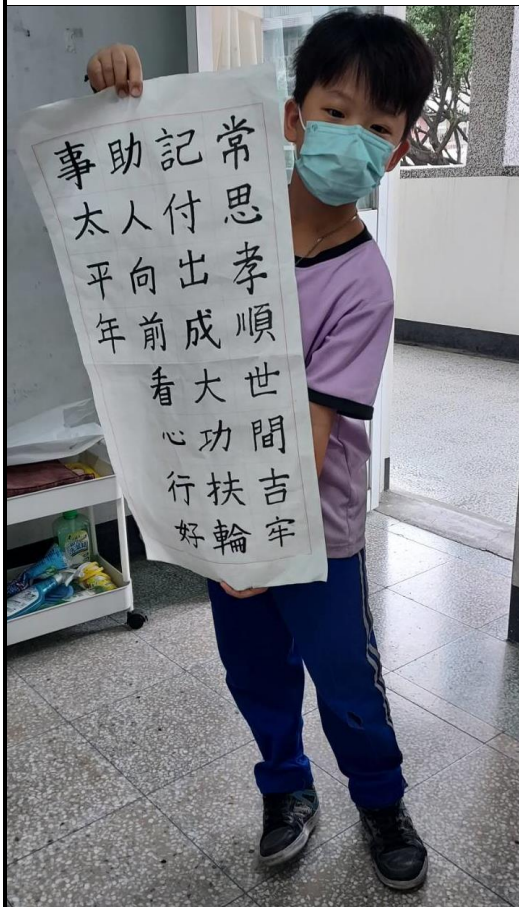 常思孝順世間吉牢
記付出成大功扶輪
助人向前看心行好
事太平年